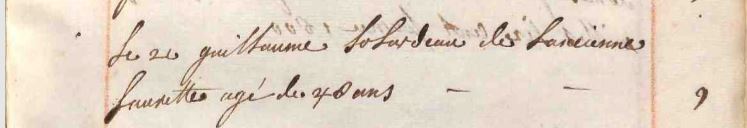 Le 22 guillaume Lolardeau de Lancienne
Saunette agé de 48 ans — — 9